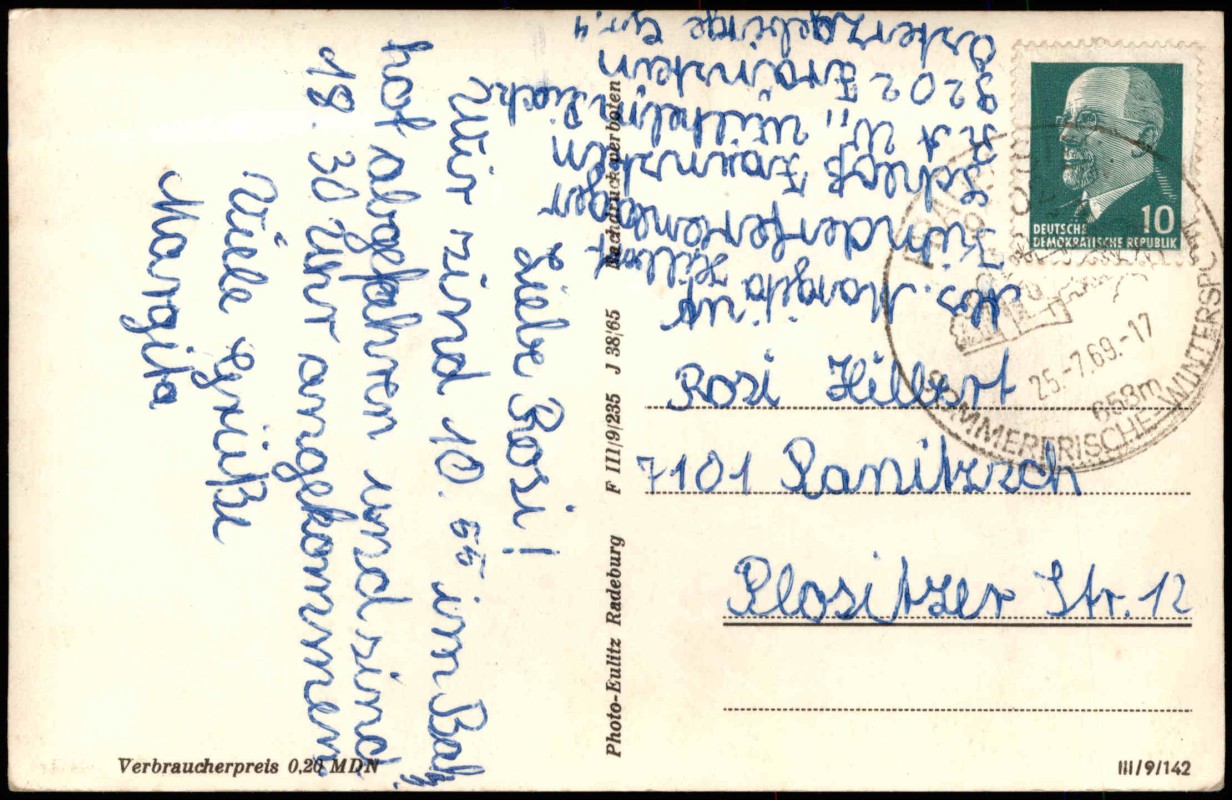 Liebe Rosi!
Wir sind 10.55 im Bah
hof abgefahren und sind
18.30 Uhr angekommen
Viele Grüße
Margita
Verbraucherpreis 0,20 MDN
Photo-Eulitz Radeburg F III/9/235 J 38/65 Nachdruck verboten
Abs. Margita Hilbert
Kinderferienlager
Schloß Frauenstein
"Wilhelm Pieck"
9202 Frauenstein
Osterzgebirge Gr. 4
DEUTSCHE
DEMOKRATISCHE REPUBLIK
10
25.-7.69.-17
658m
SOMMERFRISCHE WINTERSPO
Rosi Hilbert
7101 Panitzsch
Plositzer Str. 12
III/9/142